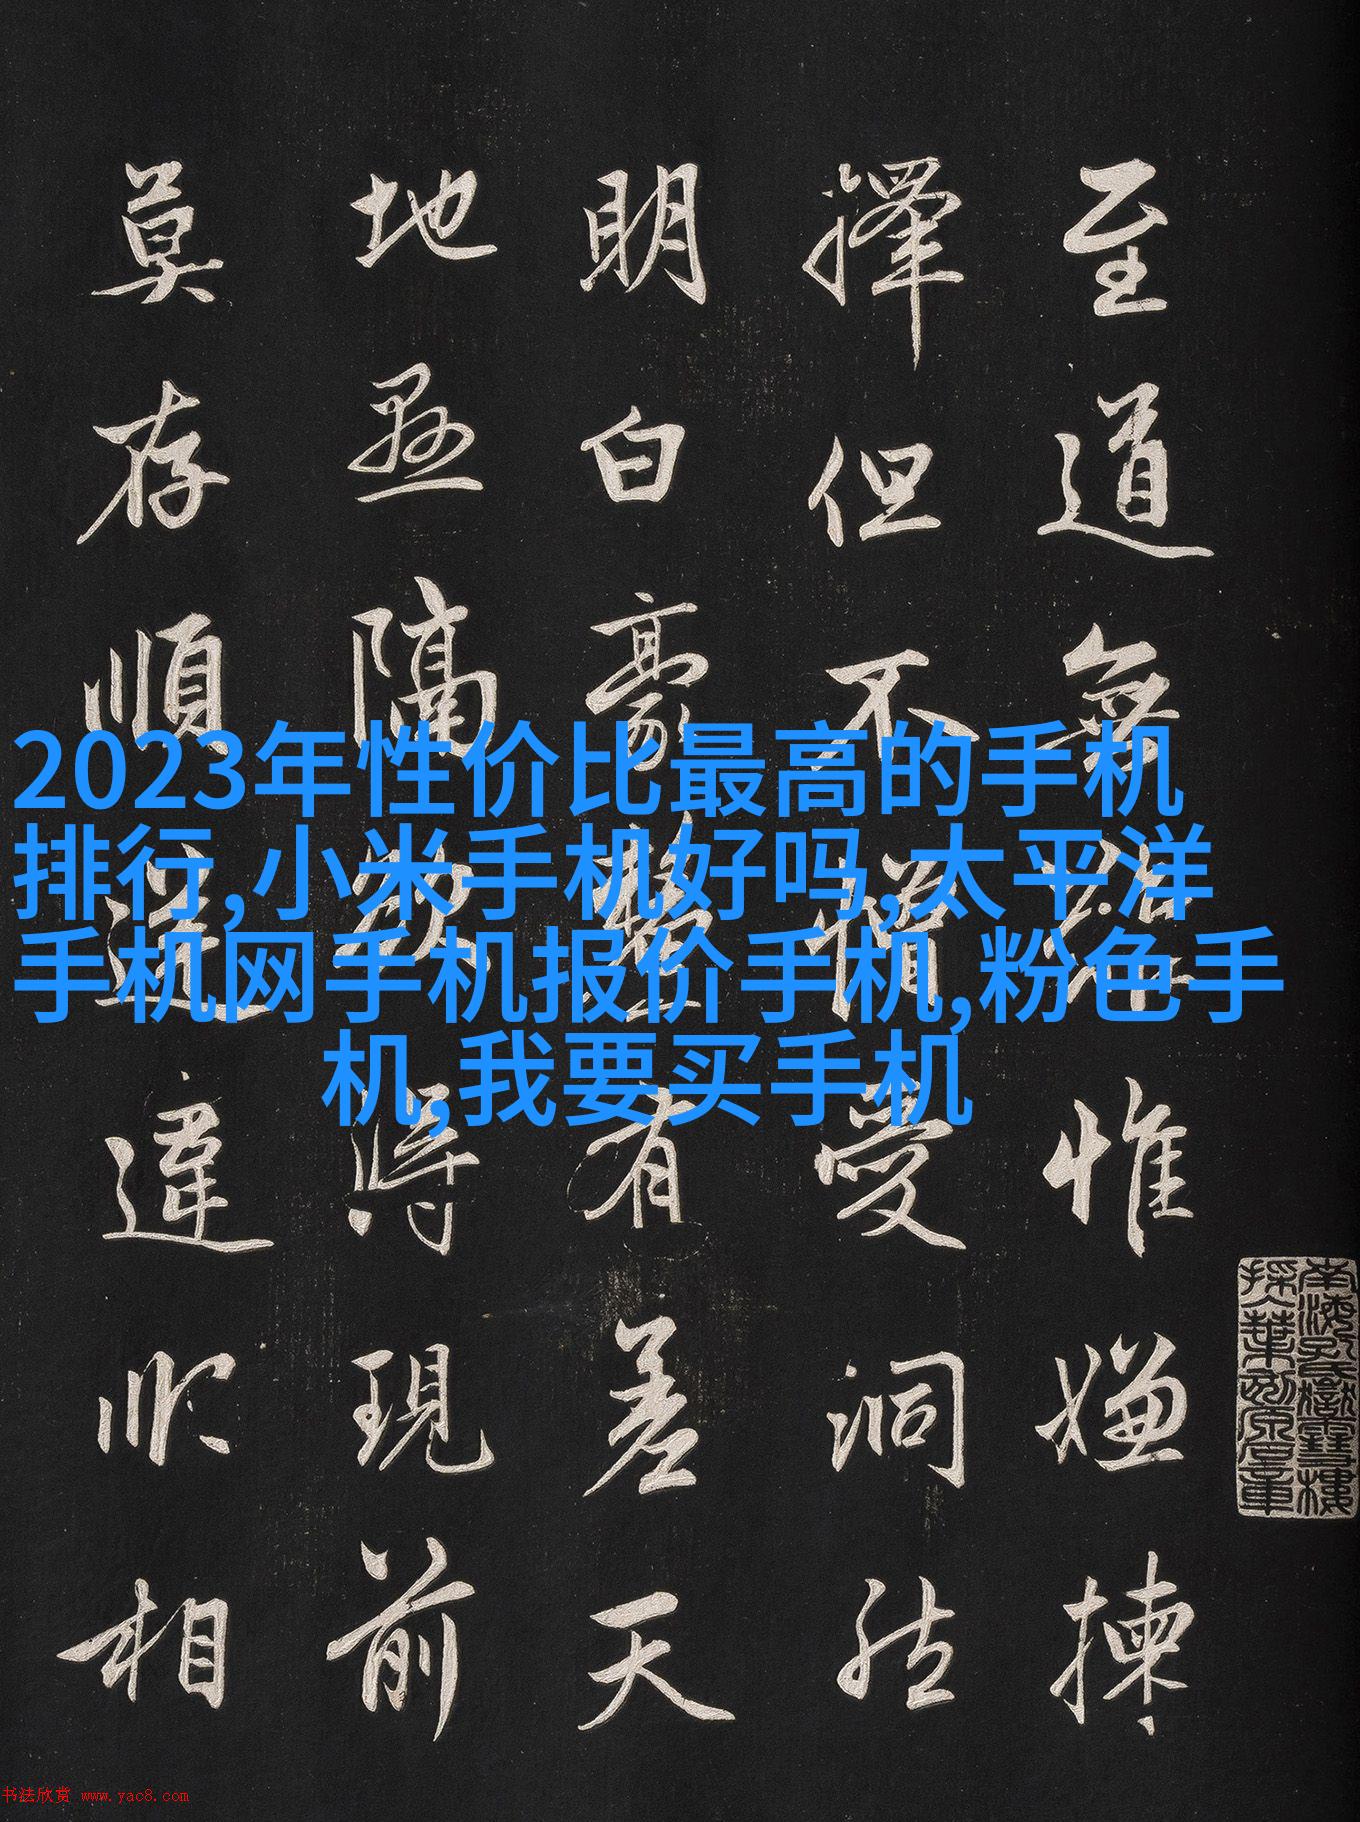 至道無難惟嫌揀
擇但不憎愛洞然
明白豪釐有差天
地懸隔欲得現前
莫存順逆違順相
2023年性价比最高的手机
排行,小米手机好吗,太平洋
手机网手机报价手机,粉色手
机,我要买手机
南海孔氏嶽雪樓
书法欣赏 www.yac8.com